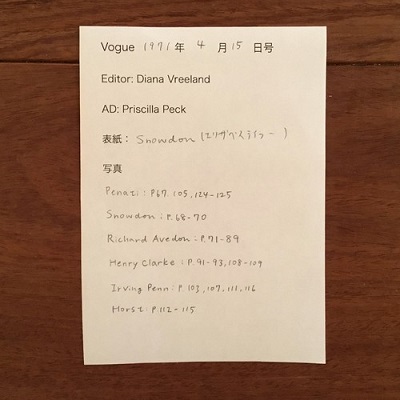 Vogue 1971年 4月15日号
Editor: Diana Vreeland
AD: Priscilla Peck
表紙: Snowdon (エリザベステイラー)
写真
Penati: P67. 105, 124-125
Snowdon: P. 68-70
Richard Avedon: P. 71-89
Henry Clarke: P. 91-93, 108-109
Irving Penn: P. 103, 107, 111, 116
Horst: P. 112-115